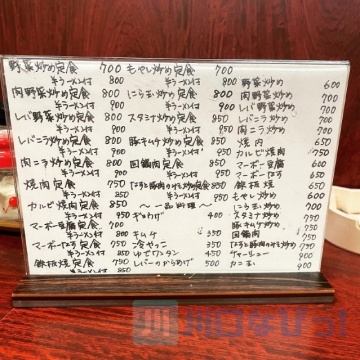 野菜炒め定食 700
半ラーメン付 800
肉野菜炒め定食 800
半ラーメン付 900
レバ野菜炒め定食 800
半ラーメン付 900
レバニラ炒め定食
半ラーメン付
肉ニラ炒め定食
半ラーメン付
焼肉定食 850
半ラーメン付 950
カルビ焼肉定食 850
半ラーメン付 950
マーボー豆腐定食 700
半ラーメン付 800
マーボーなす定食 750
半ラーメン付 850
鉄板焼定食 750
半ラーメン付 850
もやし炒め定食 700
半ラーメン付 800
にら玉炒め定食 800
半ラーメン付 900
スタミナ炒め定食 850
半ラーメン付 950
豚キムチ炒め定食 850
半ラーメン付 950
回鍋肉定食 850
半ラーメン付 950
なすと豚肉のみそ炒め定食 850
半ラーメン付 950
〜一品料理〜
ギョウザ 400
キムチ 350
冷やっこ 350
ゆでワンタン 450
レバーのからあげ 500
野菜炒め 600
肉野菜炒め 700
レバ野菜炒め 700
レバニラ炒め 700
肉ニラ炒め 700
焼肉 750
カルビ焼肉 750
マーボー豆腐 600
マーボーなす 650
鉄板焼 650
もやし炒め 600
にら玉炒め 700
スタミナ炒め 750
豚キムチ炒め 750
回鍋肉 750
なすと豚肉のみそ炒め 750
チャーシュー 700
カニ玉 800